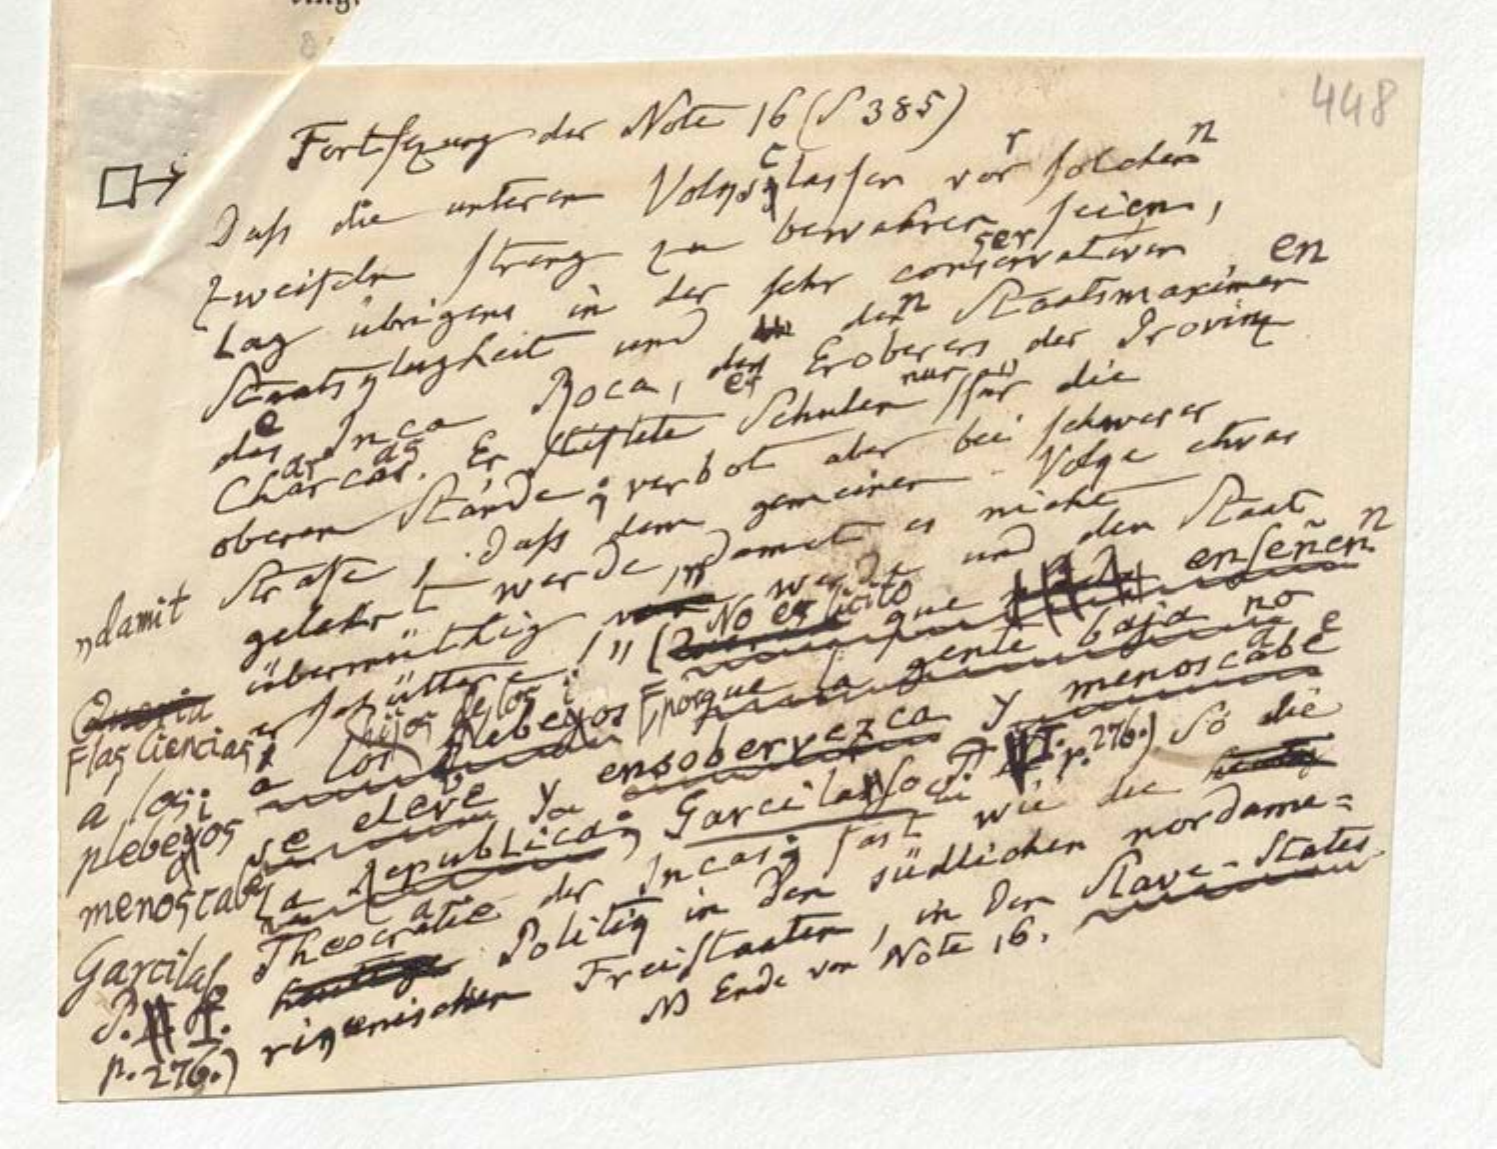 448
Fortsezung der Note 16 (S 385)
Daß die unteren Volksclassen vor solchen
Zweifeln streng zu bewahren seien,
lag übrigens in der sehr conservativen
Staatsklugheit und den Staatsmaximen
des Inca Roca, des Eroberers der Provinz
Charcas. Er stiftete Schulen nur für die
oberen Stände; verbot aber bei schwerer
Strafe, daß dem gemeinen Volke etwas
gelehrt werde, „damit es nicht
übermüthig werde und den Staat
erschüttere!" (No es licito que enseñen
a los hijos de los plebeyos porque la gente baja no
se eleve y ensobervezca y menoscabe
la Republica; Garcilasso P. I. p. 276.) So die
Theocratie der Incas; fast wie die
Politik in den südlichen nordame=
rikanischen Freistaaten, in den Slave-States.
NB Ende von Note 16.
„damit
las Ciencias
a los
plebeyos
menoscabe
Garcilaß
P. I.
p. 276.)